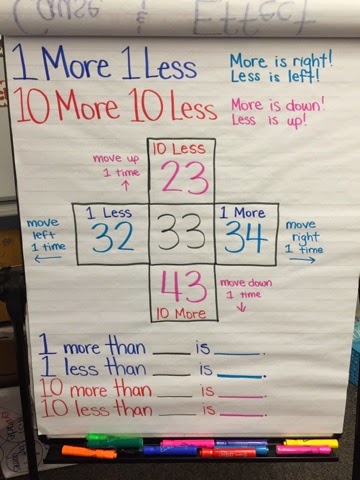 Cause & Effect
1 More 1 Less
More is right!
Less is left!
10 More 10 Less
More is down!
Less is up!
move up
1 time
10 Less
23
move
left
1 time
1 Less
32
33
1 More
34
move
right
1 time
43
10 More
move down
1 time
1 more than ___ is ___.
1 less than ___ is ___.
10 more than ___ is ___.
10 less than ___ is ___.